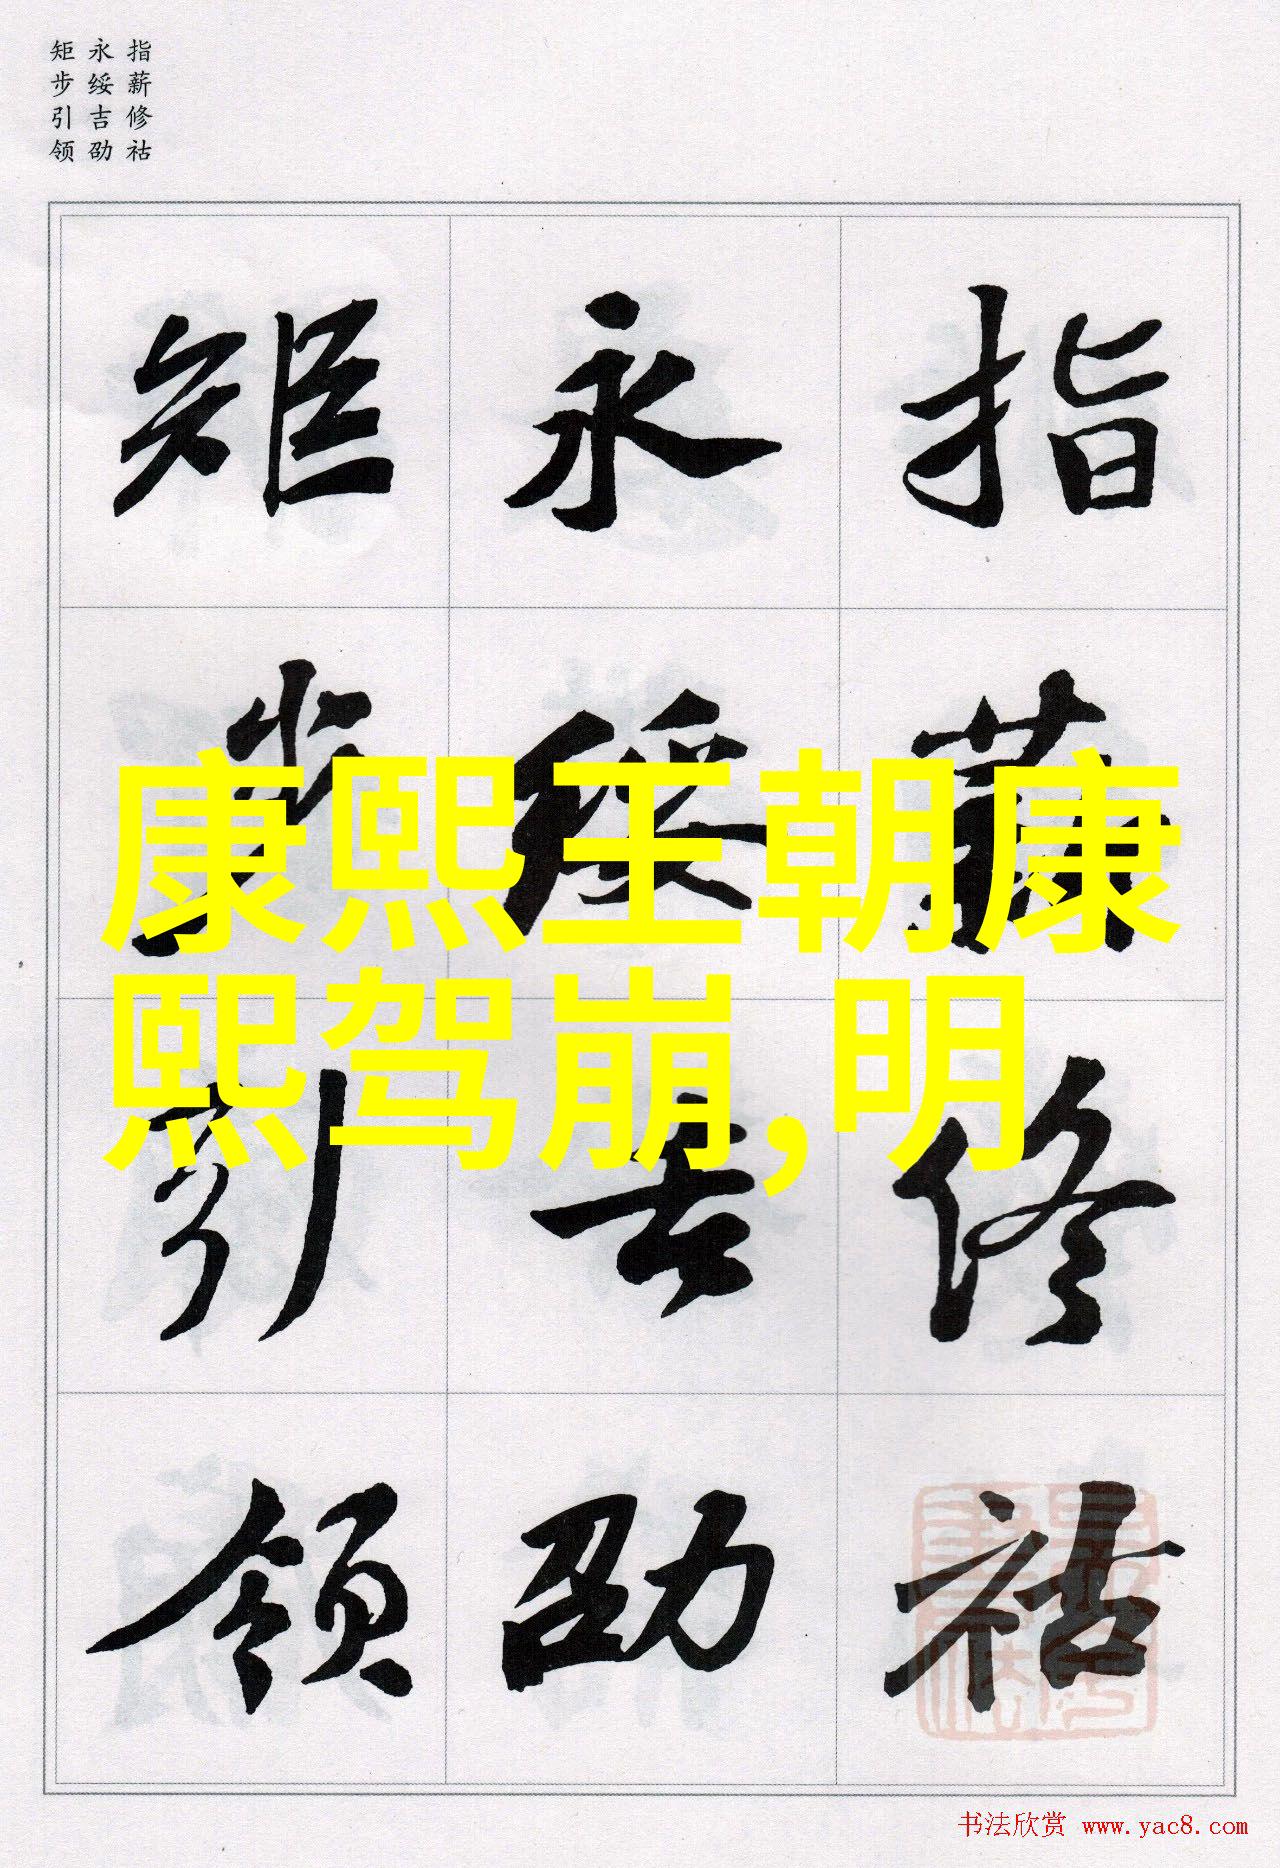 指薪修祜
永绥吉劭
矩步引领
指薪修祜
永绥吉劭
矩步引领
康熙王朝康
熙驾崩,明
书法欣赏 www.yac8.com